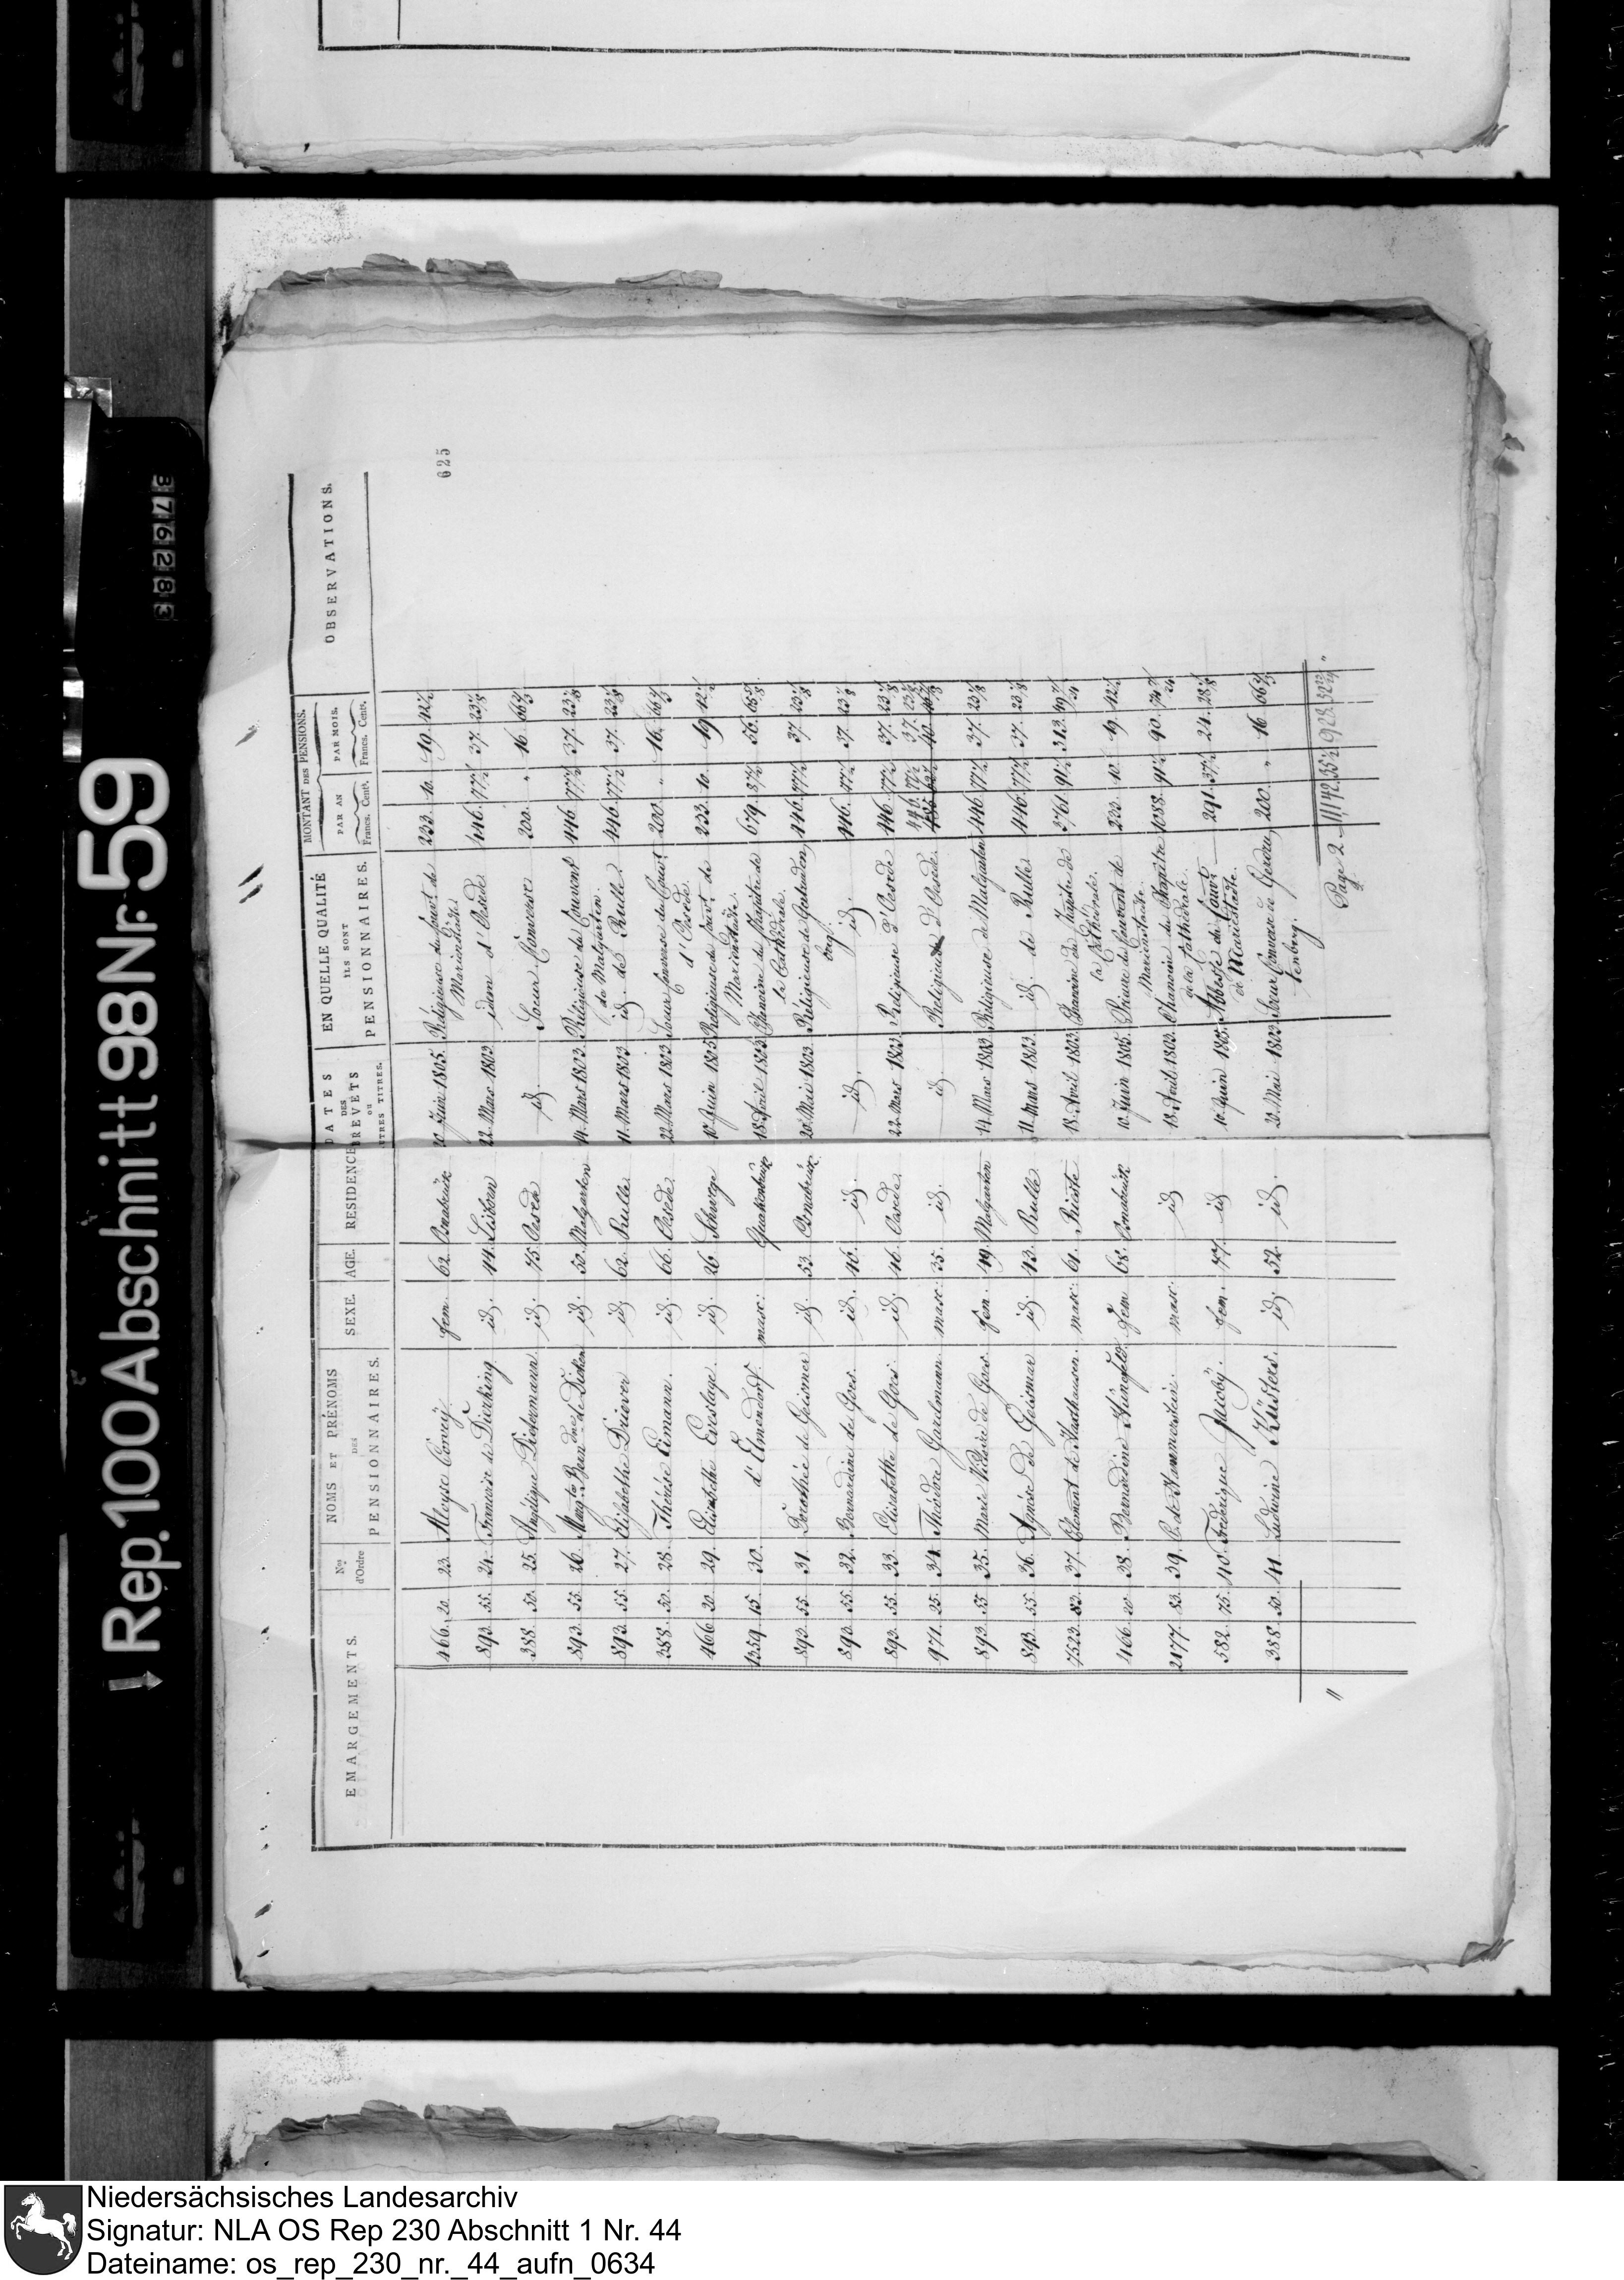 625
EMARGEMENTS.
Nos d'Ordre
NOMS ET PRÉNOMS DES PENSIONNAIRES.
SEXE.
AGE.
RESIDENCE
DATES DES BREVETS OU AUTRES TITRES.
EN QUELLE QUALITÉ ILS SONT PENSIONNAIRES.
MONTANT DES PENSIONS.
PAR AN
Francs. Cent.
PAR MOIS.
Francs. Cents.
OBSERVATIONS.
466. 20. 23. Aloyse fem. 62. Osnabrück 10 Juin 1805. Réligieuse du Couvt de Marienstaedt 233. 10. 19. 42½
893. 55. 24. Françoise de id. 44. 22. Mars 1803 idem d'Oesede 446. 77½ 37. 23⅛
388. 50. 25. Angélique id. 75. Oesede id. Soeur Converse 200. " 16. 66⅔
893. 55. 26. id. 50. Malgarten 14. Mars 1803. Réligieuse du Couvent de Malgarten. 446. 77½ 37. 23⅛
893. 55. 27. Elisabethe Driever id. 62. Rulle 11. Mars 1803 id. de Rulle. 446. 77½ 37. 23⅛
388. 50. 28. Thérèse Eimann. id. 66. Oesede. 22. Mars 1803. Soeur Converse du Couvt d'Oesede. 200. " 16. 66⅔
466. 20. 29. Elisabethe Everslage. id. 26. 10 Juin 1805 Religieuse du Couvt de Marienstaedt. 233. 10. 19. 42½
1359. 15. 30. d'Elmendorff. masc: Quakenbrück 18 Avril 1803. Chanoine du Chapitre de la Cathédrale. 679. 57½ 56.
893. 55. 31. Dorothée de Geismer id. 53. Osnabrück 20. Mai 1803. Réligieuse de Gertrudenbrg. 446. 77½ 37. 23⅛
893. 55. 32. Bernardine de Gors. id. 46. id. id. id. 446. 77½ 37. 23⅛
893. 55. 33. Elisabethe de Gors id. 46. Oesede. 22. Mars 1803. Religieuse d'Oesede 446. 77½ 37. 23⅛
971. 25. 34. Théodore Gardmann. masc: 35. id. id. Religieux d'Oesede. 446. 77½ 37. 23⅛
893. 55. 35. Marie Victoire de Gors. fem. 49. Malgarten 14. Mars 1803 Réligieuse de Malgarten 446. 77½ 37. 23⅛
893. 55. 36. Agnése de Geismar id. 43. Rulle 11. Mars 1803. id. de Rulle 446. 77½ 37. 23⅛
7523. 83. 37. Clément de Haxthausen. masc: 61. Rieste 18. Avril 1803. Chanoine du Chapitre de la Cathédrale. 3761. 91½ 313.
466. 20. 38. Bernardine Hünefeld fem 68. Osnabrück 10. Juin 1805. Prieure du Couvent de Marienstaedt. 233. 10. 19. 42½
2177. 83. 39. C. de Hammerstein masc: id 18. Avril 1803. Chanoine du Chapitre de la Cathédrale. 1088. 91½ 90.
582. 75. 40. Fréderique Jacoby. fem. 77. id 10. Juin 1805. Abbesse du Couvt de Marienstaedt. 291. 37½ 24. 28⅛
388. 50. 41. Ludwine Küsters. id. 52. id. 20 Mai 1803. Soeur Converse de Gertrudenberg. 200. " 16. 66⅔
Page 2
↓ Rep. 100 A Abschnitt 98 Nr. 59
376283
Niedersächsisches Landesarchiv
Signatur: NLA OS Rep 230 Abschnitt 1 Nr. 44
Dateiname: os_rep_230_nr._44_aufn_0634